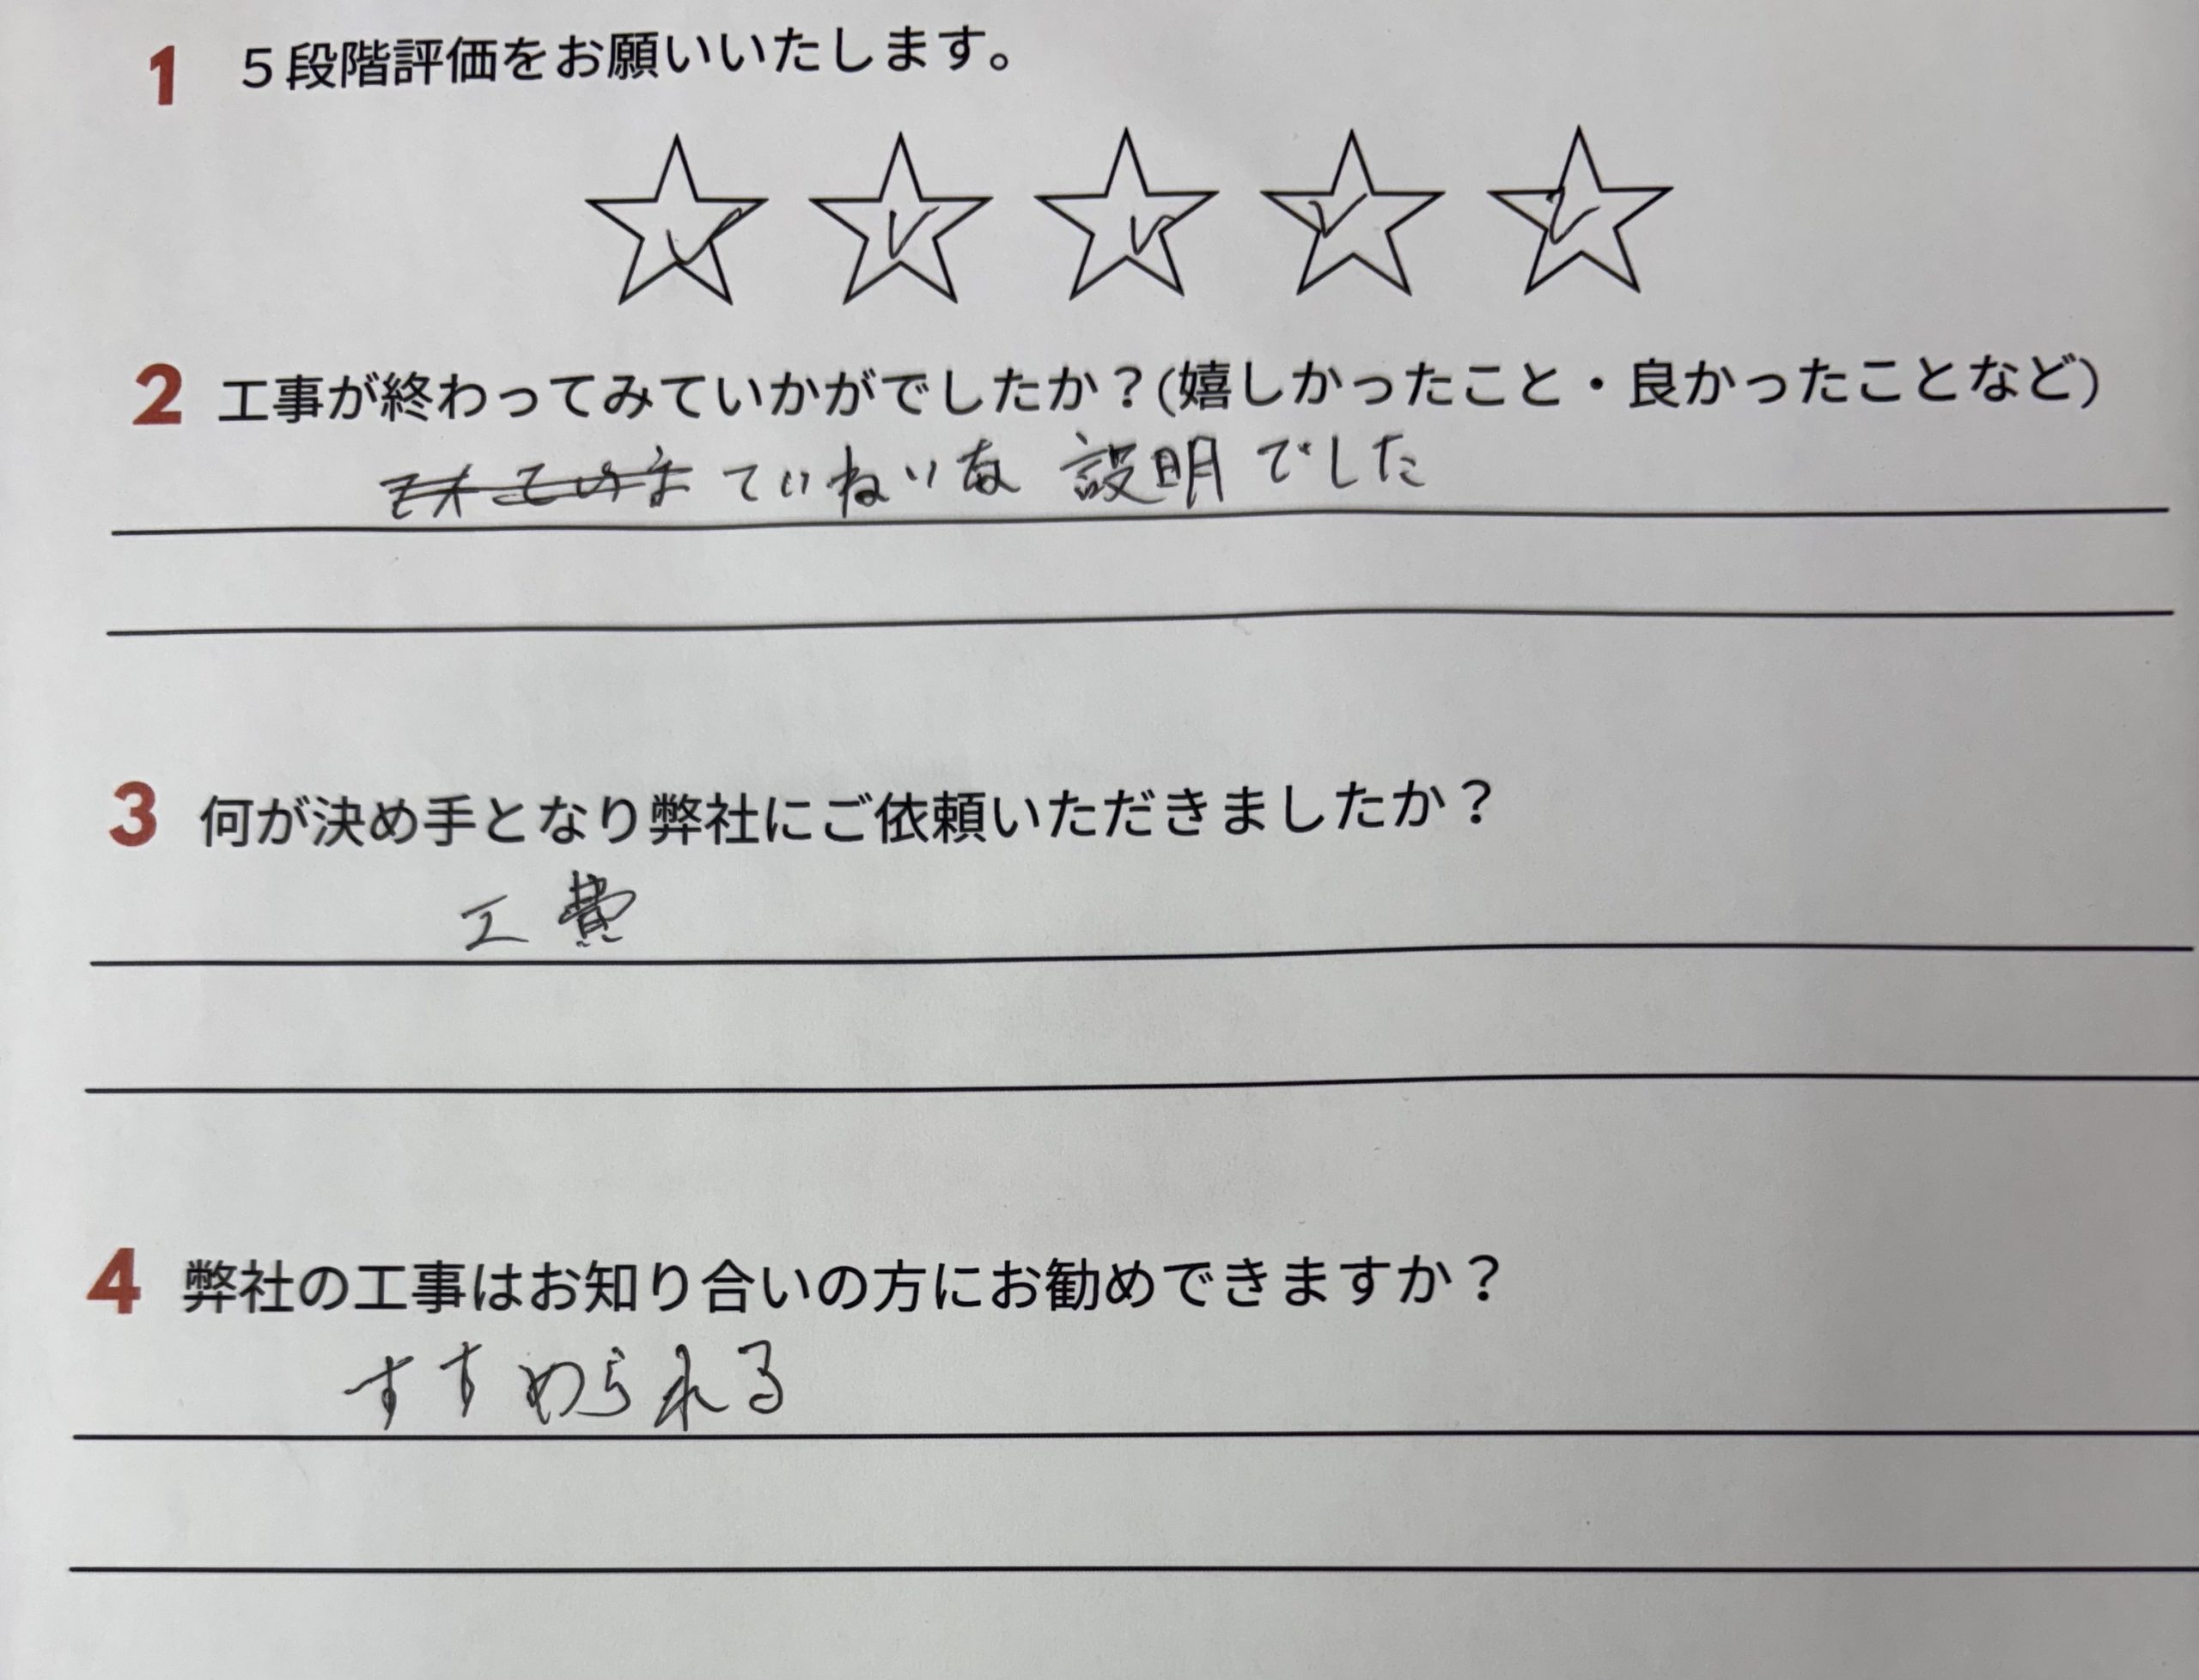 1 5段階評価をお願いいたします。
2 工事が終わってみていかがでしたか？(嬉しかったこと・良かったことなど)
ていねいな 説明でした
3 何が決め手となり弊社にご依頼いただきましたか？
工費
4 弊社の工事はお知り合いの方にお勧めできますか？
すすめられる